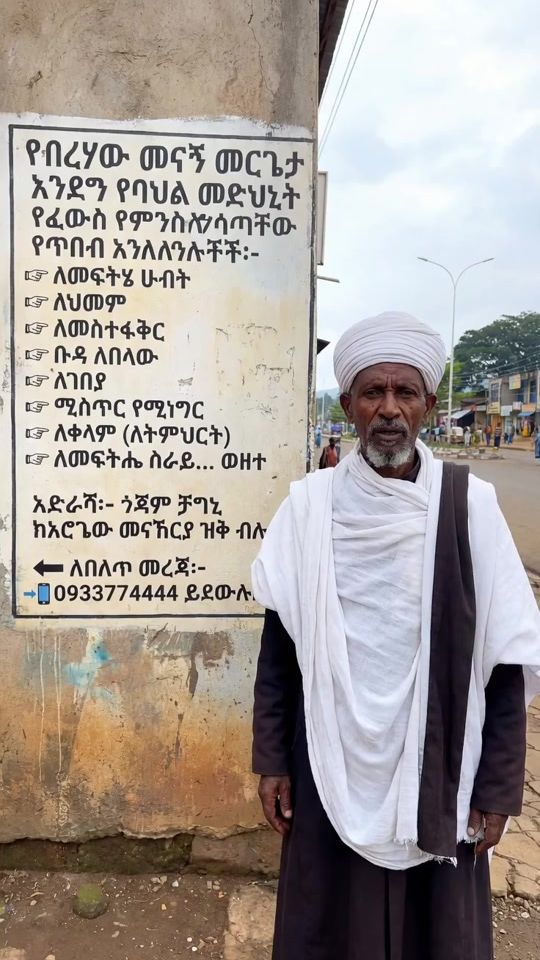 የበረሃው መናኝ መርጌታ
አንደግ የባህል መድህኒት
የፈውስ የምንስ ሳጣቸው
የጥበብ አንለለዓሉችች፡-
☞ ለመፍትሄ ሁብት
☞ ለህመም
☞ ለመስተፋቅር
☞ ቡዳ ለበላው
☞ ለገበያ
☞ ሚስጥር የሚነግር
☞ ለቀላም (ለትምህርት)
☞ ለመፍትሔ ስራይ... ወዘተ
አድራሻ፡- ጎጃም ቻግኒ
ከአሮጌው መናኸርያ ዝቅ ብሎ
← ለበለጥ መረጃ፡-
0933774444 ይደውሉ